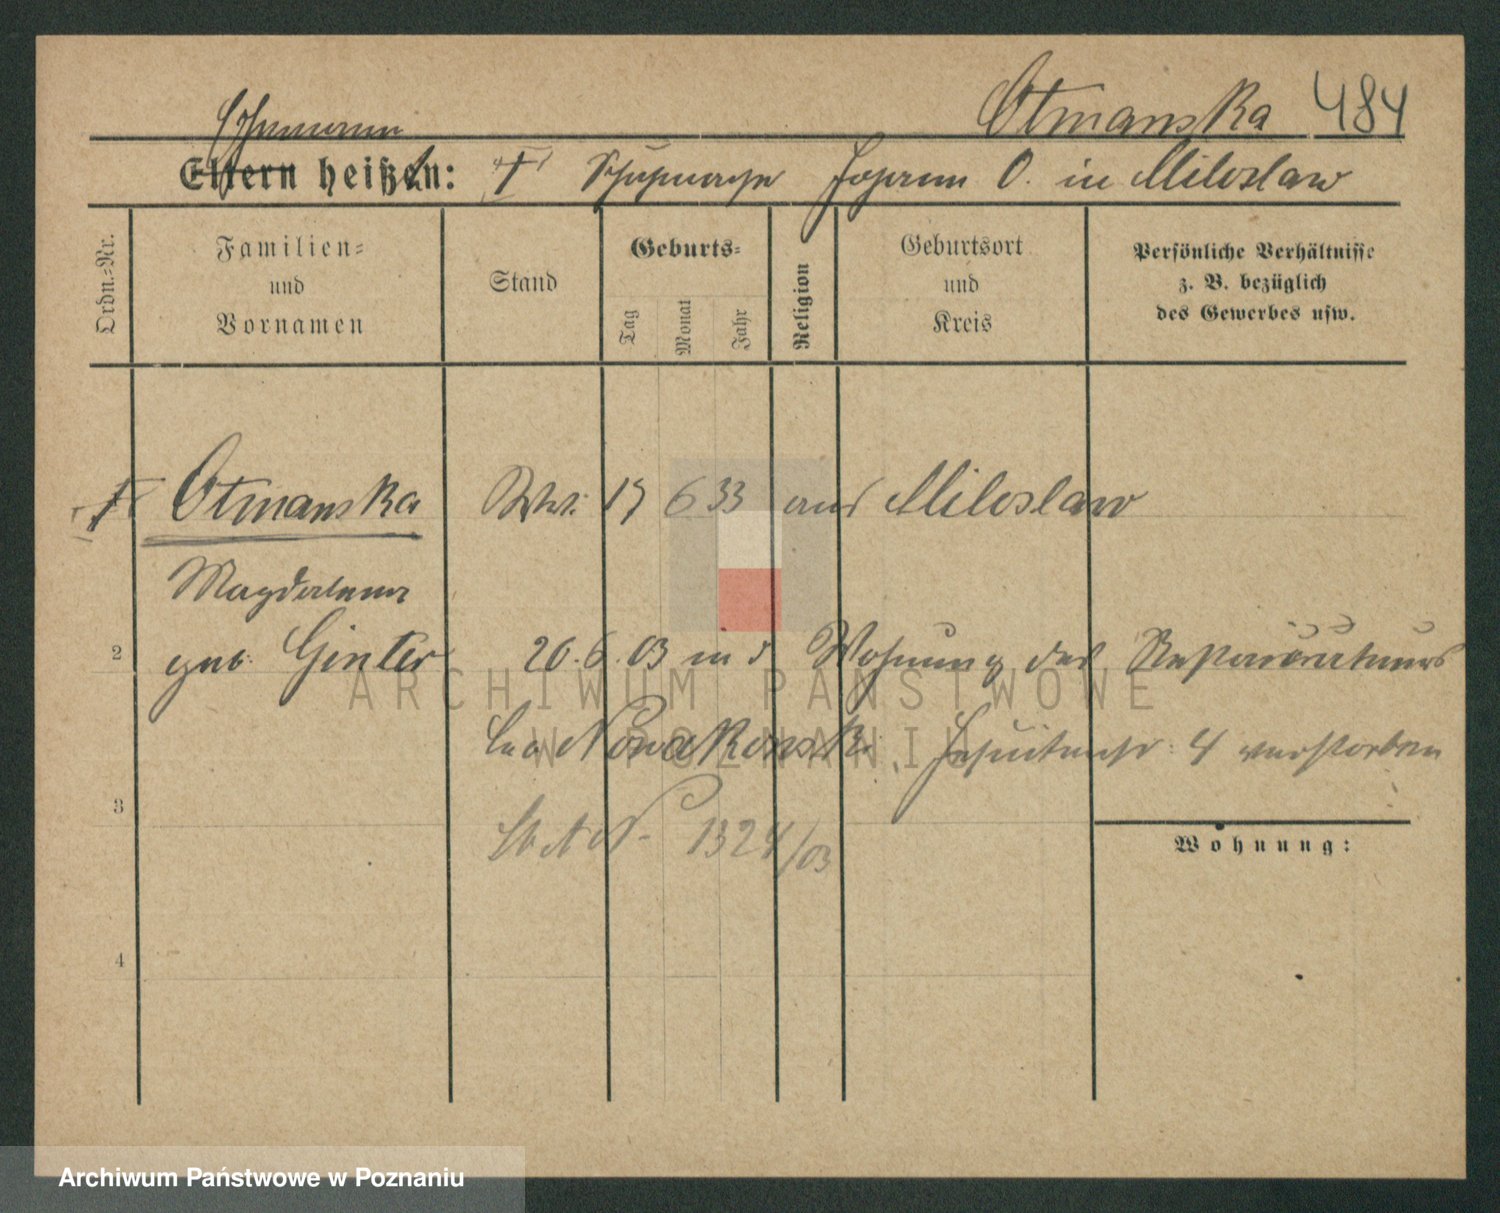 Otmanska 484
Ehemann
Eltern heißen: † Schuhmacher Johann O. in Miloslaw
Ordn.=Nr.
Familien=
und
Vornamen
Stand
Geburts=
Tag
Monat
Jahr
Religion
Geburtsort
und
Kreis
Persönliche Verhältnisse
z. B. bezüglich
des Gewerbes usw.
† Otmanska Ww. 17 6 33 aus Miloslaw
Magdalena
2 geb. Ginter 20. 6. 03 in d Wohnung des Restaurateurs
Leo Nowakowski Jesuitenstr. 4 verstorben
3
St A N 1324/03
Wohnung:
4
ARCHIWUM PAŃSTWOWE
W POZNANIU
Archiwum Państwowe w Poznaniu